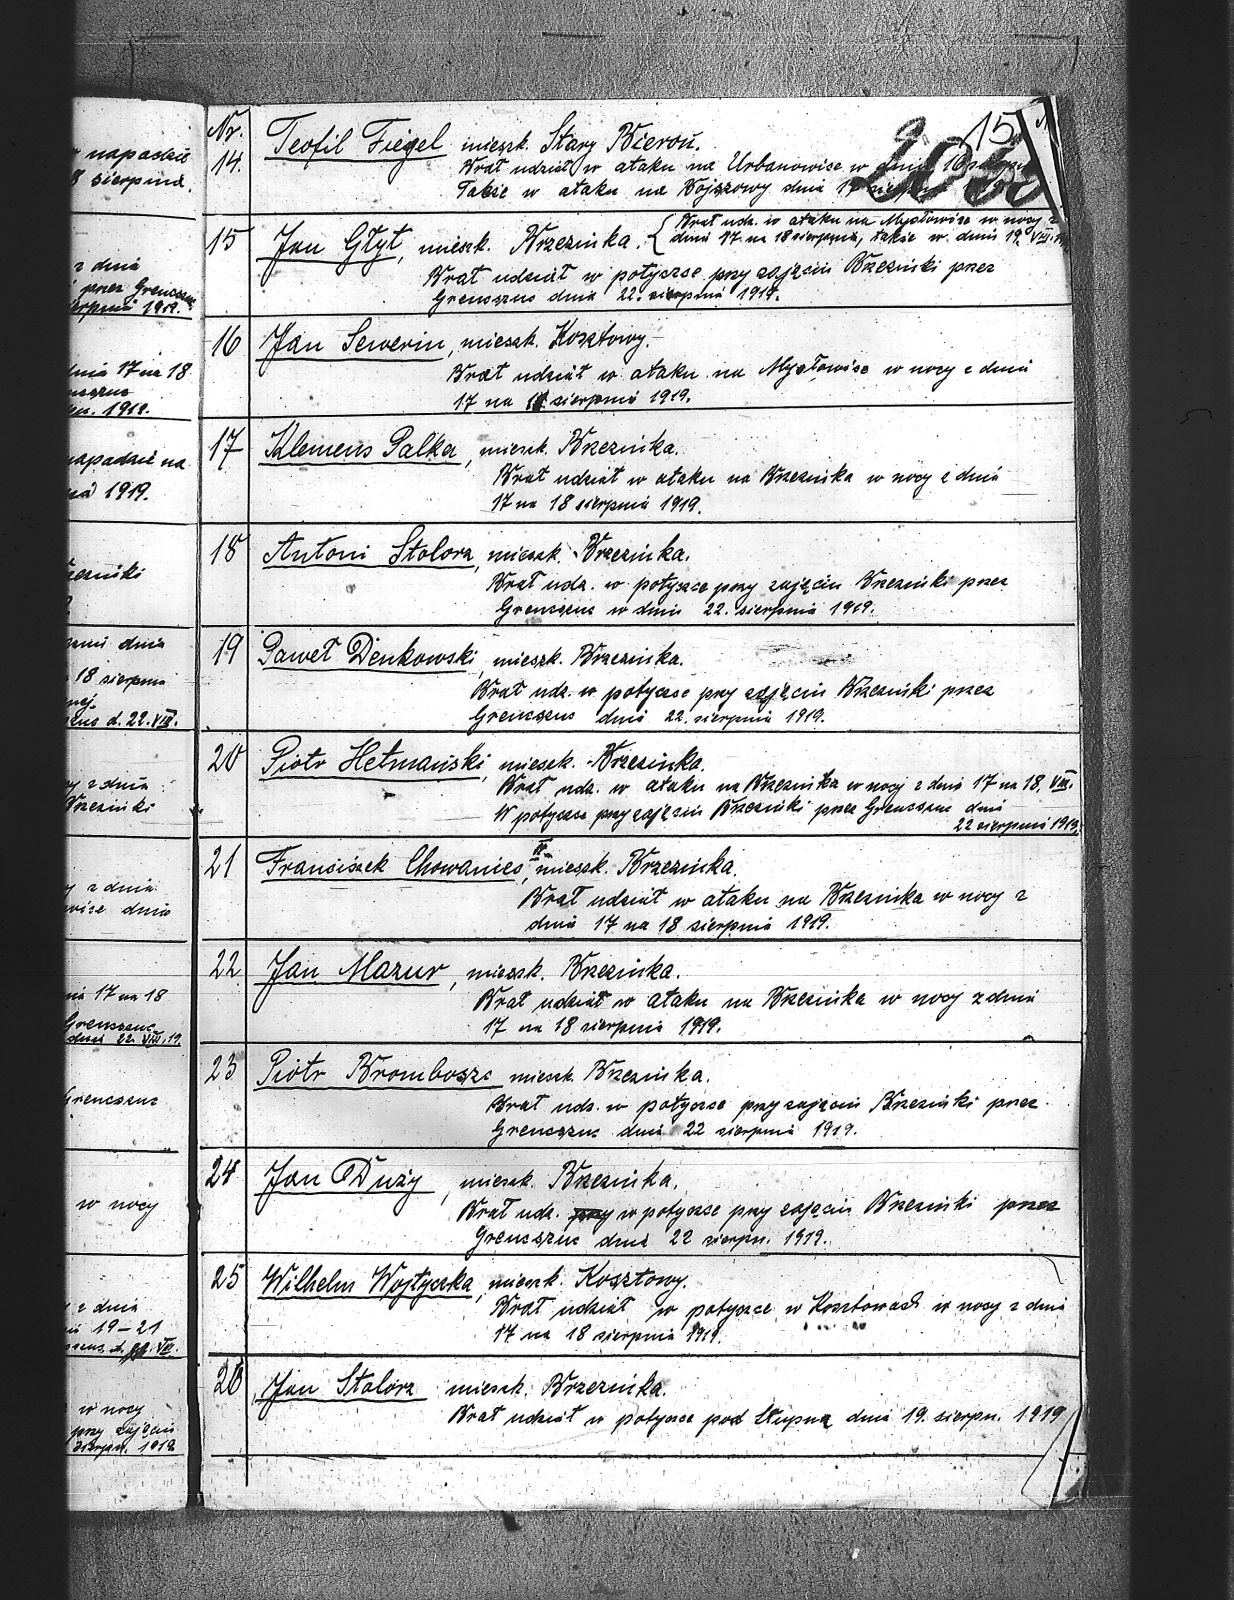 napadzie
8 sierpnia.
z dnia
przez Grencszuc
sierpnia 1919.
dnia 17 na 18
1919.
napadzie na
1919.
dnia
18 sierpnia
d. 22. VIII.
z dnia
Brzezinki
z dnia
dnia
17 na 18
Grencszuc
dnia 22. VIII. 19.
Grencszuc
w nocy
z dnia
19-21
VIII.
w nocy
przy zajęciu
sierpn. 1919
15
Nr.
14. Teofil Fiegel mieszk. Stary Bieroń.
Brał udział w ataku na Urbanowice w dniu
Także w ataku na Wojszowy dnia
15 Jan Głyt, mieszk. Brzezinka. { Brał udz. w ataku na Mysłowice w nocy z
dnia 17 na 18 sierpnia, także w dniu 19. VIII.
Brał udział w potyczce przy zajęciu Brzezinki przez
Grencszuc dnia 22. sierpnia 1919.
16 Jan Sewerin, mieszk. Kosztowy.
Brał udział w ataku na Mysłowice w nocy z dnia
17 na 18 sierpnia 1919.
17 Klemens Palka, mieszk. Brzezinka.
Brał udział w ataku na Brzezinka w nocy z dnia
17 na 18 sierpnia 1919.
18 Antoni Stolorz, mieszk. Brzezinka.
Brał udz. w potyczce przy zajęciu Brzezinki przez
Grencszuc w dniu 22. sierpnia 1919.
19 Paweł Denkowski, mieszk. Brzezinka.
Brał udz. w potyczce przy zajęciu Brzezinki przez
Grencszuc dnia 22. sierpnia 1919.
20 Piotr Hetmański, mieszk. Brzezinka.
Brał udz. w ataku na Brzezinka w nocy z dnia 17 na 18. VIII.
W potyczce przy zajęciu Brzezinki przez Grencszuc dnia
22 sierpnia 1919.
21 Franciszek Chowaniec, mieszk. Brzezinka.
Brał udział w ataku na Brzezinka w nocy z
dnia 17 na 18 sierpnia 1919.
22 Jan Mazur, mieszk. Brzezinka.
Brał udział w ataku na Brzezinka w nocy z dnia
17 na 18 sierpnia 1919.
23 Piotr Brombosze mieszk. Brzezinka.
Brał udz. w potyczce przy zajęciu Brzezinki przez
Grencszuc dnia 22 sierpnia 1919.
24 Jan Duży, mieszk. Brzezinka.
Brał udz. przy w potyczce przy zajęciu Brzezinki przez
Grencszuc dnia 22 sierpn. 1919.
25 Wilhelm Wojtyczka, mieszk. Kosztowy.
Brał udział w potyczce w Kosztowach w nocy z dnia
17 na 18 sierpnia 1919.
26 Jan Stolorz mieszk. Brzezinka.
Brał udział w potyczce pod Stupną dnia 19. sierpn. 1919